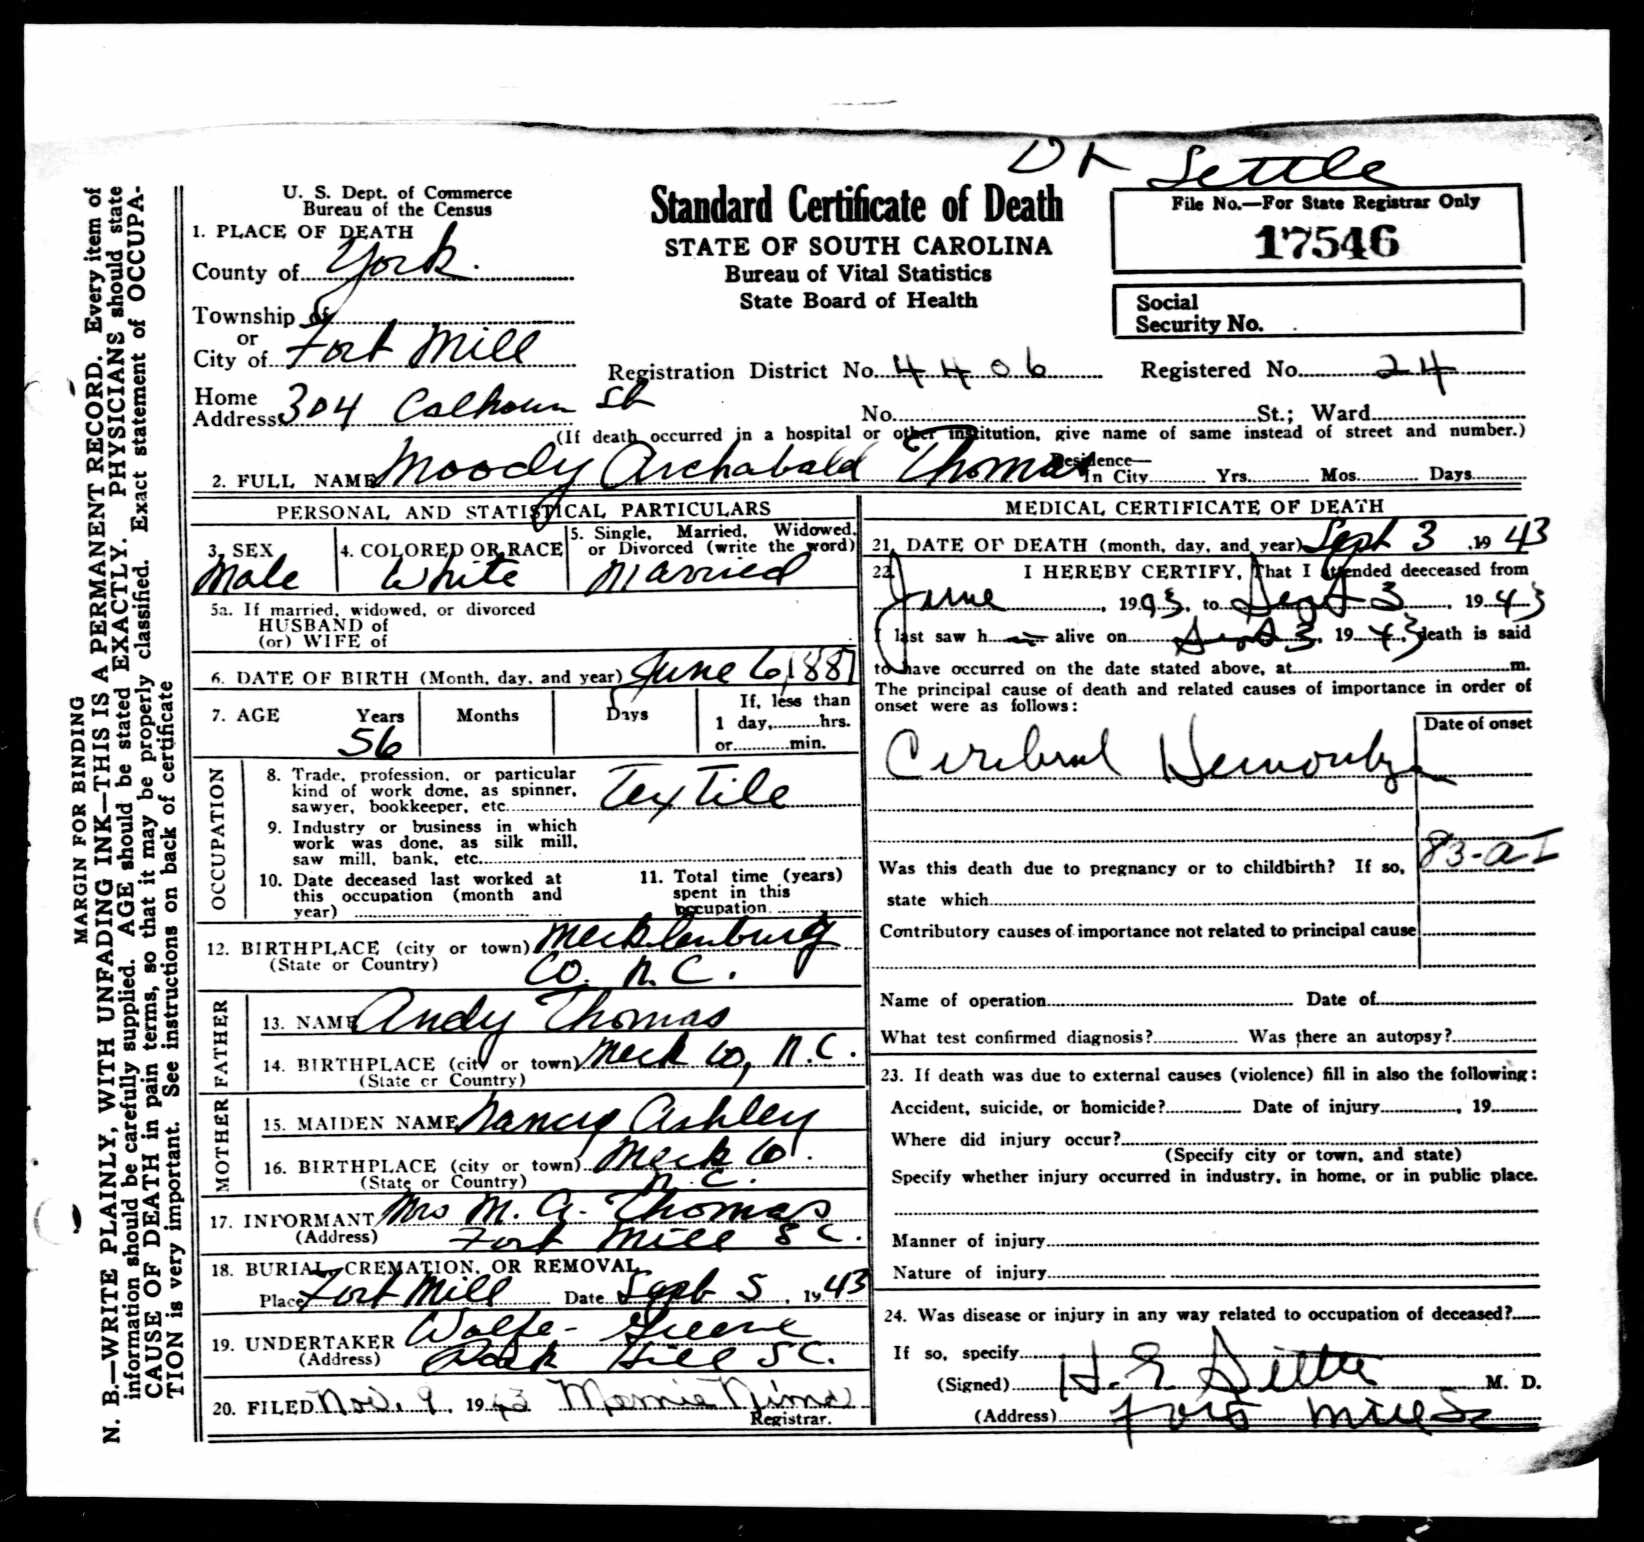 Dr Settle
U. S. Dept. of Commerce
Bureau of the Census
Standard Certificate of Death
STATE OF SOUTH CAROLINA
Bureau of Vital Statistics
State Board of Health
File No.—For State Registrar Only
17546
Social
Security No.
1. PLACE OF DEATH
County of York
Township of
or
City of Fort Mill
Registration District No. 4406 Registered No. 24
Home
Address 304 Calhoun St
No. St.; Ward
(If death occurred in a hospital or other institution, give name of same instead of street and number.)
2. FULL NAME Moody Archabald Thomas Residence—
In City Yrs. Mos. Days
PERSONAL AND STATISTICAL PARTICULARS
3. SEX
Male
4. COLORED OR RACE
White
5. Single, Married, Widowed,
or Divorced (write the word)
Married
5a. If married, widowed, or divorced
HUSBAND of
(or) WIFE of
6. DATE OF BIRTH (Month, day, and year) June 6 1887
7. AGE Years Months Days If, less than
1 day, hrs.
56 or min.
OCCUPATION
8. Trade, profession, or particular
kind of work done, as spinner,
sawyer, bookkeeper, etc. Textile
9. Industry or business in which
work was done, as silk mill,
saw mill, bank, etc.
10. Date deceased last worked at
this occupation (month and
year)
11. Total time (years)
spent in this
occupation
12. BIRTHPLACE (city or town) Mecklenburg
(State or Country) Co. N.C.
FATHER
13. NAME Andy Thomas
14. BIRTHPLACE (city or town) Meck Co, N.C.
(State or Country)
MOTHER
15. MAIDEN NAME Nancy Ashley
16. BIRTHPLACE (city or town) Meck Co.
(State or Country) N.C.
17. INFORMANT Mrs M. A. Thomas
(Address) Fort Mill S C.
18. BURIAL, CREMATION, OR REMOVAL
Place Fort Mill Date Sept 5, 1943
19. UNDERTAKER Wolfe-Greene
(Address) Rock Hill S C.
20. FILED Nov. 9, 1943 Mamie Nims
Registrar.
MEDICAL CERTIFICATE OF DEATH
21. DATE OF DEATH (month, day, and year) Sept 3, 1943
22. I HEREBY CERTIFY, That I attended deeceased from
June, 1943, to Sept 3, 1943
I last saw h alive on Sept 3, 1943, death is said
to have occurred on the date stated above, at m.
The principal cause of death and related causes of importance in order of
onset were as follows:
Date of onset
Cerebral Hemorrhage
83-a-I
Was this death due to pregnancy or to childbirth? If so,
state which
Contributory causes of importance not related to principal cause
Name of operation Date of
What test confirmed diagnosis? Was there an autopsy?
23. If death was due to external causes (violence) fill in also the following:
Accident, suicide, or homicide? Date of injury, 19
Where did injury occur?
(Specify city or town, and state)
Specify whether injury occurred in industry, in home, or in public place.
Manner of injury
Nature of injury
24. Was disease or injury in any way related to occupation of deceased?
If so, specify
(Signed) H. E. Settle M. D.
(Address) Fort Mill SC
MARGIN FOR BINDING
N. B.—WRITE PLAINLY, WITH UNFADING INK—THIS IS A PERMANENT RECORD. Every item of
information should be carefully supplied. AGE should be stated EXACTLY. PHYSICIANS should state
CAUSE OF DEATH in pain terms, so that it may be properly classified. Exact statement of OCCUPA-
TION is very important. See instructions on back of certificate